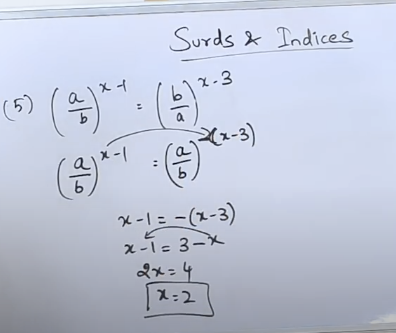 Surds & Indices
(5) (a/b)^x-1 = (b/a)^x-3
(a/b)^x-1 = (a/b)^-(x-3)
x-1 = -(x-3)
x-1 = 3-x
2x = 4
x = 2